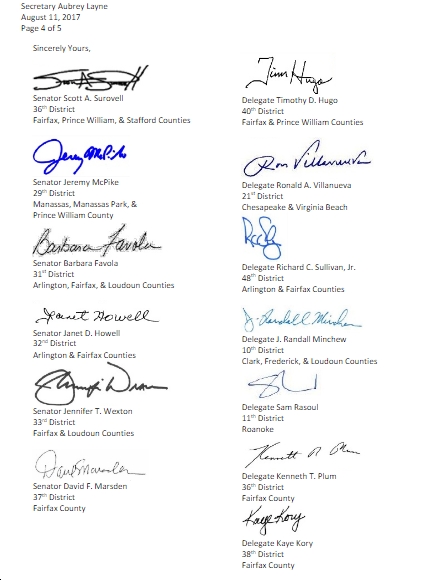 Secretary Aubrey Layne
August 11, 2017
Page 4 of 5
Sincerely Yours,
Senator Scott A. Surovell
36th District
Fairfax, Prince William, & Stafford Counties
Jeremy McPike
Senator Jeremy McPike
29th District
Manassas, Manassas Park, &
Prince William County
Barbara Favola
Senator Barbara Favola
31st District
Arlington, Fairfax, & Loudoun Counties
Janet Howell
Senator Janet D. Howell
32nd District
Arlington & Fairfax Counties
Senator Jennifer T. Wexton
33rd District
Fairfax & Loudoun Counties
Dave Marsden
Senator David F. Marsden
37th District
Fairfax County
Tim Hugo
Delegate Timothy D. Hugo
40th District
Fairfax & Prince William Counties
Ron Villanueva
Delegate Ronald A. Villanueva
21st District
Chesapeake & Virginia Beach
Delegate Richard C. Sullivan, Jr.
48th District
Arlington & Fairfax Counties
J. Randall Minchew
Delegate J. Randall Minchew
10th District
Clark, Frederick, & Loudoun Counties
Delegate Sam Rasoul
11th District
Roanoke
Kenneth R. Plum
Delegate Kenneth T. Plum
36th District
Fairfax County
Kaye Kory
Delegate Kaye Kory
38th District
Fairfax County